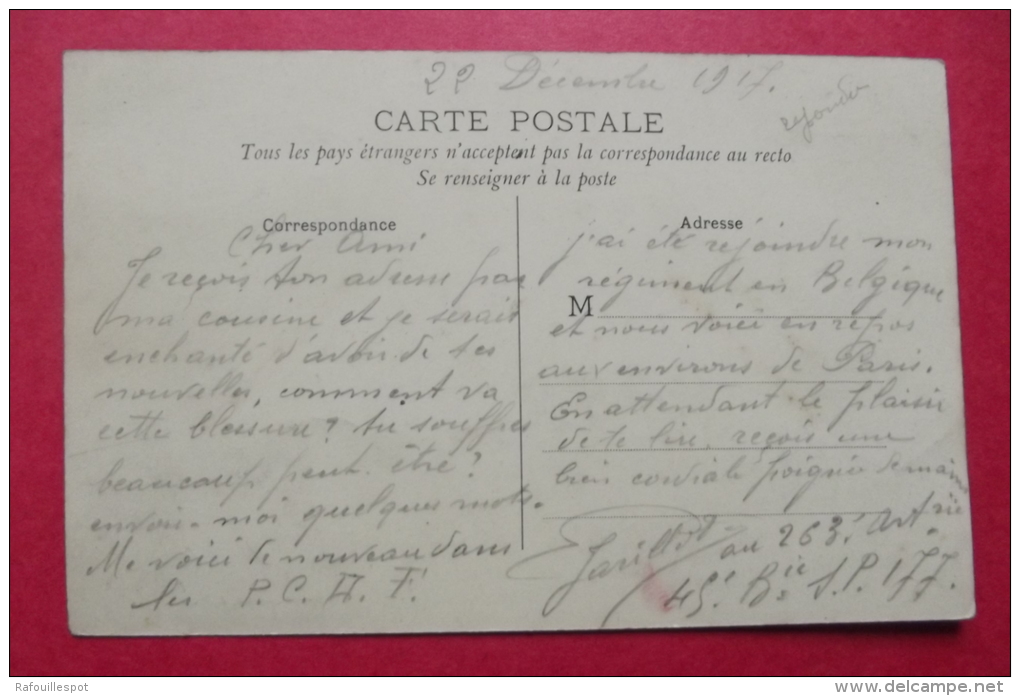 22 Décembre 1917.
répondu
CARTE POSTALE
Tous les pays étrangers n'acceptent pas la correspondance au recto
Se renseigner à la poste
Correspondance
Cher Ami
Je reçois ton adresse par
ma cousine et je serais
enchanté d'avoir de tes
nouvelles, comment va
cette blessure? tu souffres
beaucoup peut-être?
envoie-moi quelques mots.
Me voici de nouveau dans
les P. C. D. F.
Adresse
j'ai été rejoindre mon
régiment en Belgique
M
et nous voici en repos
aux environs de Paris.
En attendant le plaisir
de te lire, reçois une
bien cordiale poignée de mains
au 263e Artrie
45e Bie S.P. 177.
Rafouillespot
www.delcampe.net